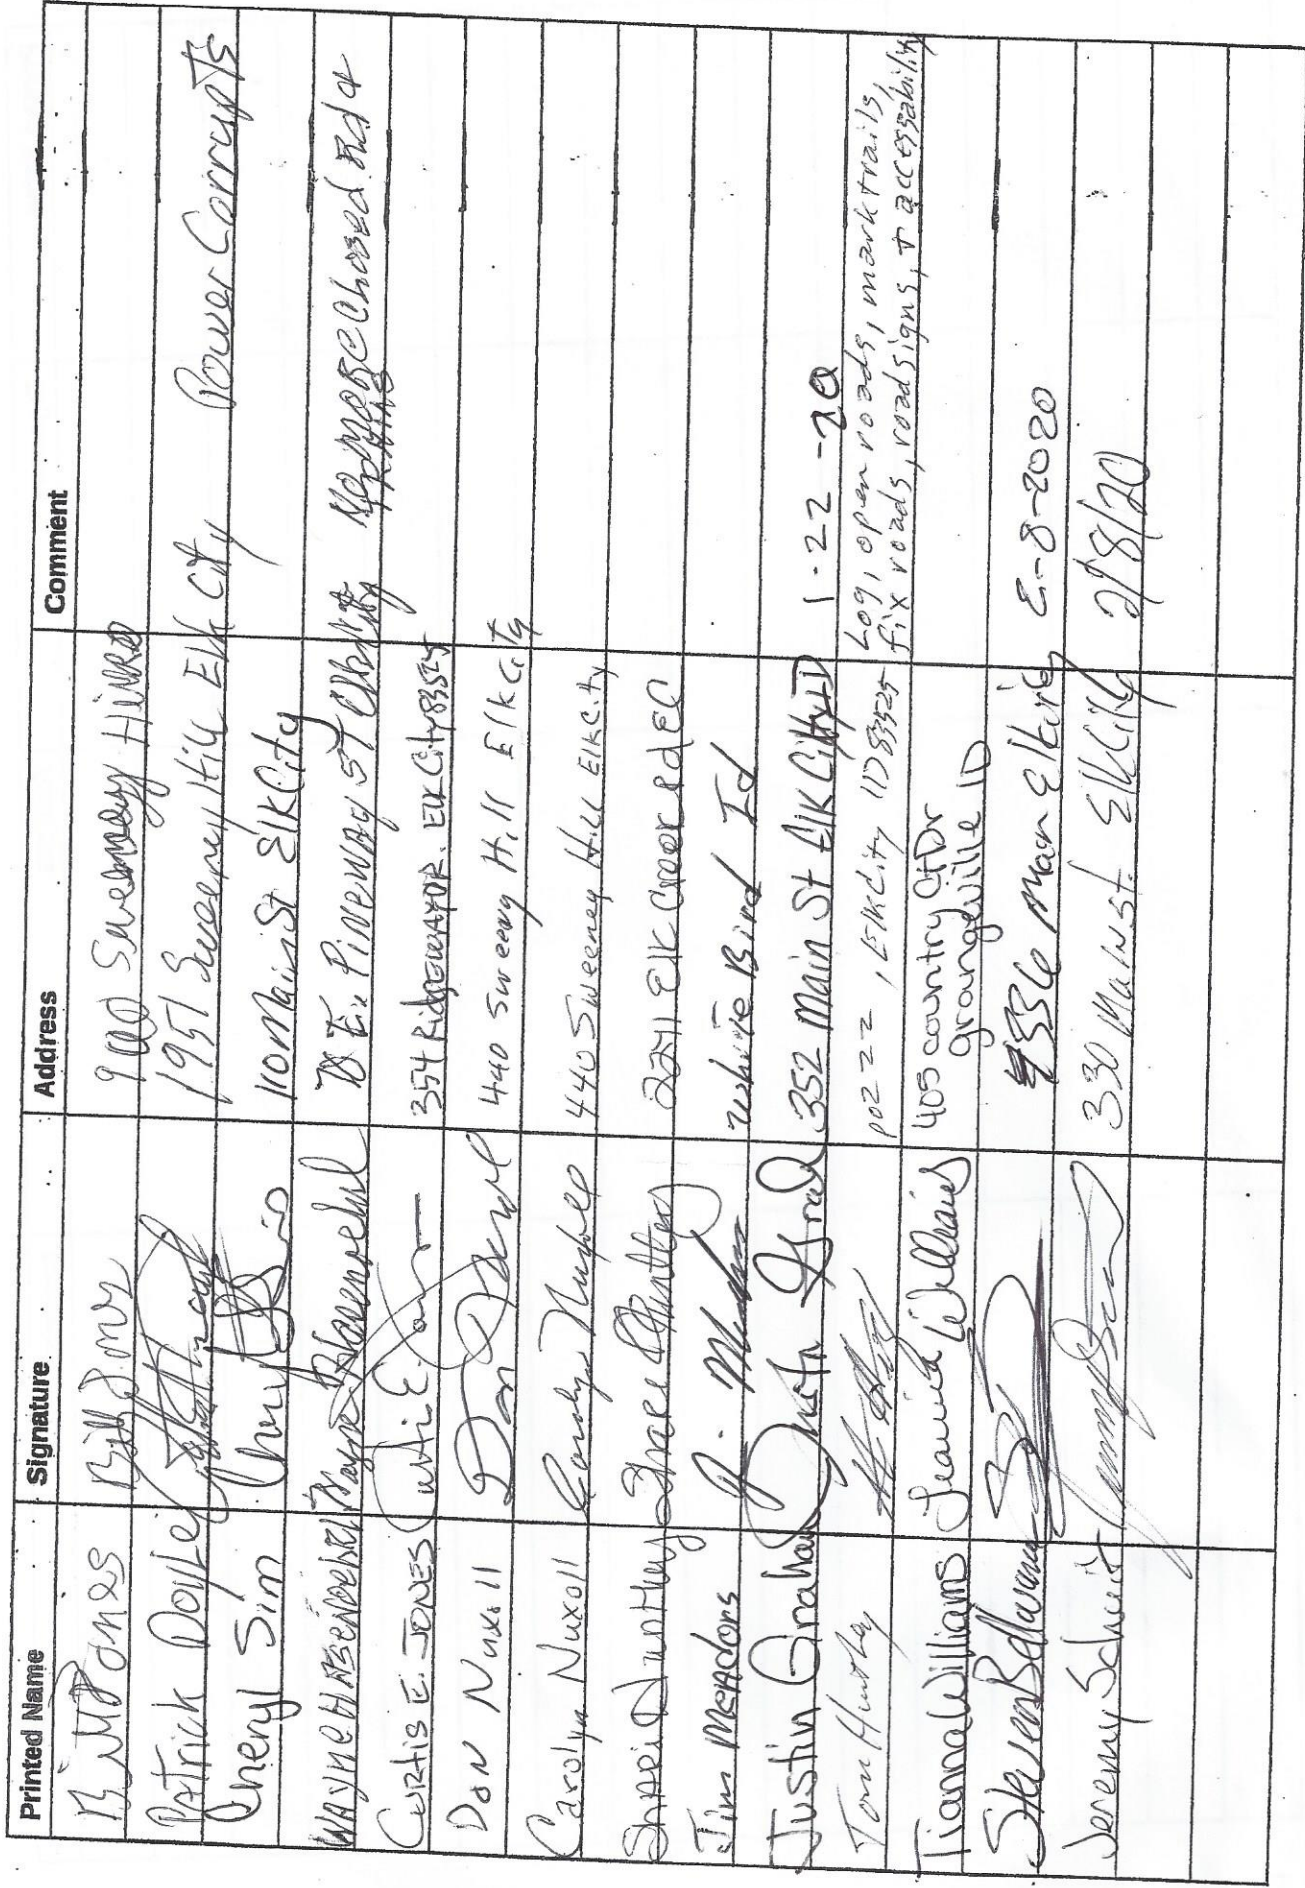 Printed Name Signature Address Comment
Bill Jones Bill Jones Sweeney Hill Rd
Patrick Doyle 1951 Sweeney Hill Elk City Power Corrupts
Cheryl Sim Cheryl Sim 110 Main St Elk City
Wayne Wayne Pineway St Elk City No More Closed Rd &
TRAILS
Curtis E. Jones Curtis E. 354 Ridgeway DR. Elk City 83525
Don Nuxoll Don Nuxoll 440 Sweeny Hill Elk City
Carolyn Nuxoll Carolyn Nuxoll 440 Sweeney Hill Elk City
Huntley Huntley Elk Creek Rd EC
Jim Meadors J. White Bird Id
Justin Graham Justin Grah 352 Main St Elk City ID 1-22-20
Tom Huntley PO 22, Elk City ID 83525 Log, open roads, mark trails,
fix roads, road signs, + accessability
Tianna Williams Williams 405 country Ct Dr
Grangeville ID
Steven Main Elk City 2-8-2020
Jeremy 330 Main St. Elk City 2/8/20